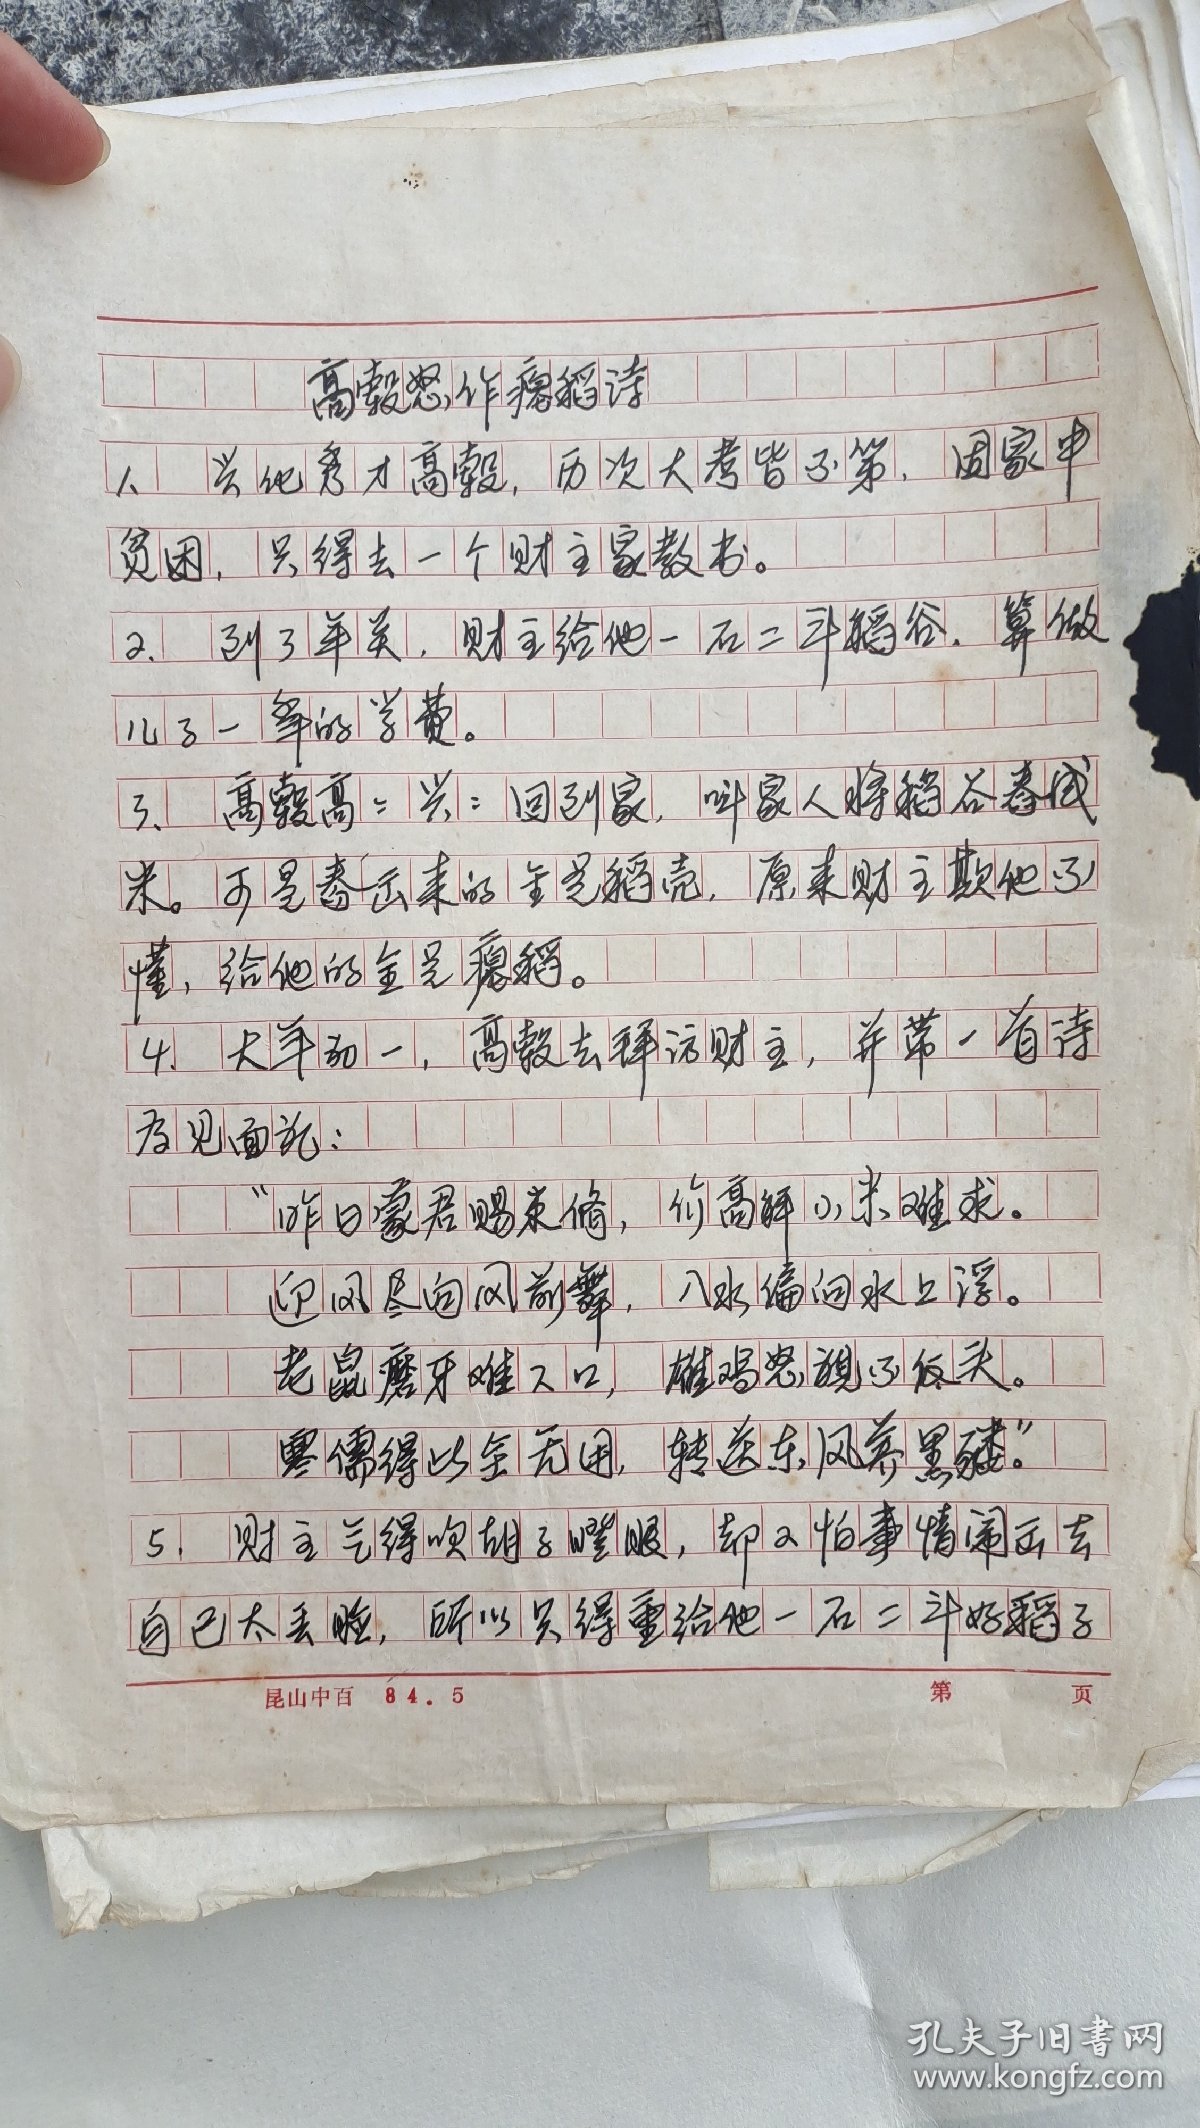 高毂怒作瘪稻诗
1、兴化秀才高毂，历次大考皆不第，因家中
贫困，只得去一个财主家教书。
2、到了年关，财主给他一石二斗稻谷，算做
儿子一年的学费。
3、高毂高=兴=回到家，叫家人将稻谷舂成
米。可是舂出来的全是稻壳，原来财主欺他不
懂，给他的全是瘪稻。
4、大年初一，高毂去拜访财主，并带一首诗
为见面礼：
“昨日蒙君赐束脩，价高难小米难求。
迎风尽向风前舞，入水偏向水上浮。
老鼠磨牙难下口，雄鸡怒视不低头。
寒儒得此全无用，转送东风养黑
5、财主气得吹胡子瞪眼，却又怕事情闹出去
自己太丢脸，所以只得重给他一石二斗好稻子
昆山中百 84.5 第 页
孔夫子旧书网
www.kongfz.com